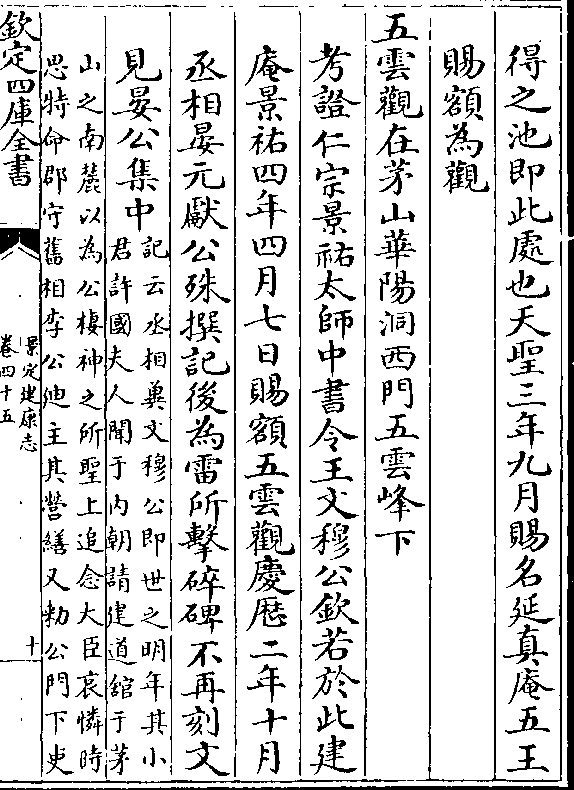 得之池即此處也天聖三年九月賜名延真庵五王
賜額為觀
五雲觀在茅山華陽洞西門五雲峰下
考證仁宗景祐太師中書令王文穆公欽若於此建
庵景祐四年四月七日賜額五雲觀慶厯二年十月
丞相晏元獻公殊撰記後為雷所擊碎碑不再刻文
見晏公集中
記云丞相冀文穆公即世之明年其小
君許國夫人聞于内朝請建道舘于茅
山之南麓以為公棲神之所聖上追念大臣哀憐時
思特命郡守舊相李公廸主其營繕又勅公門下吏
欽定四庫全書
景定建康志
卷四十五
十